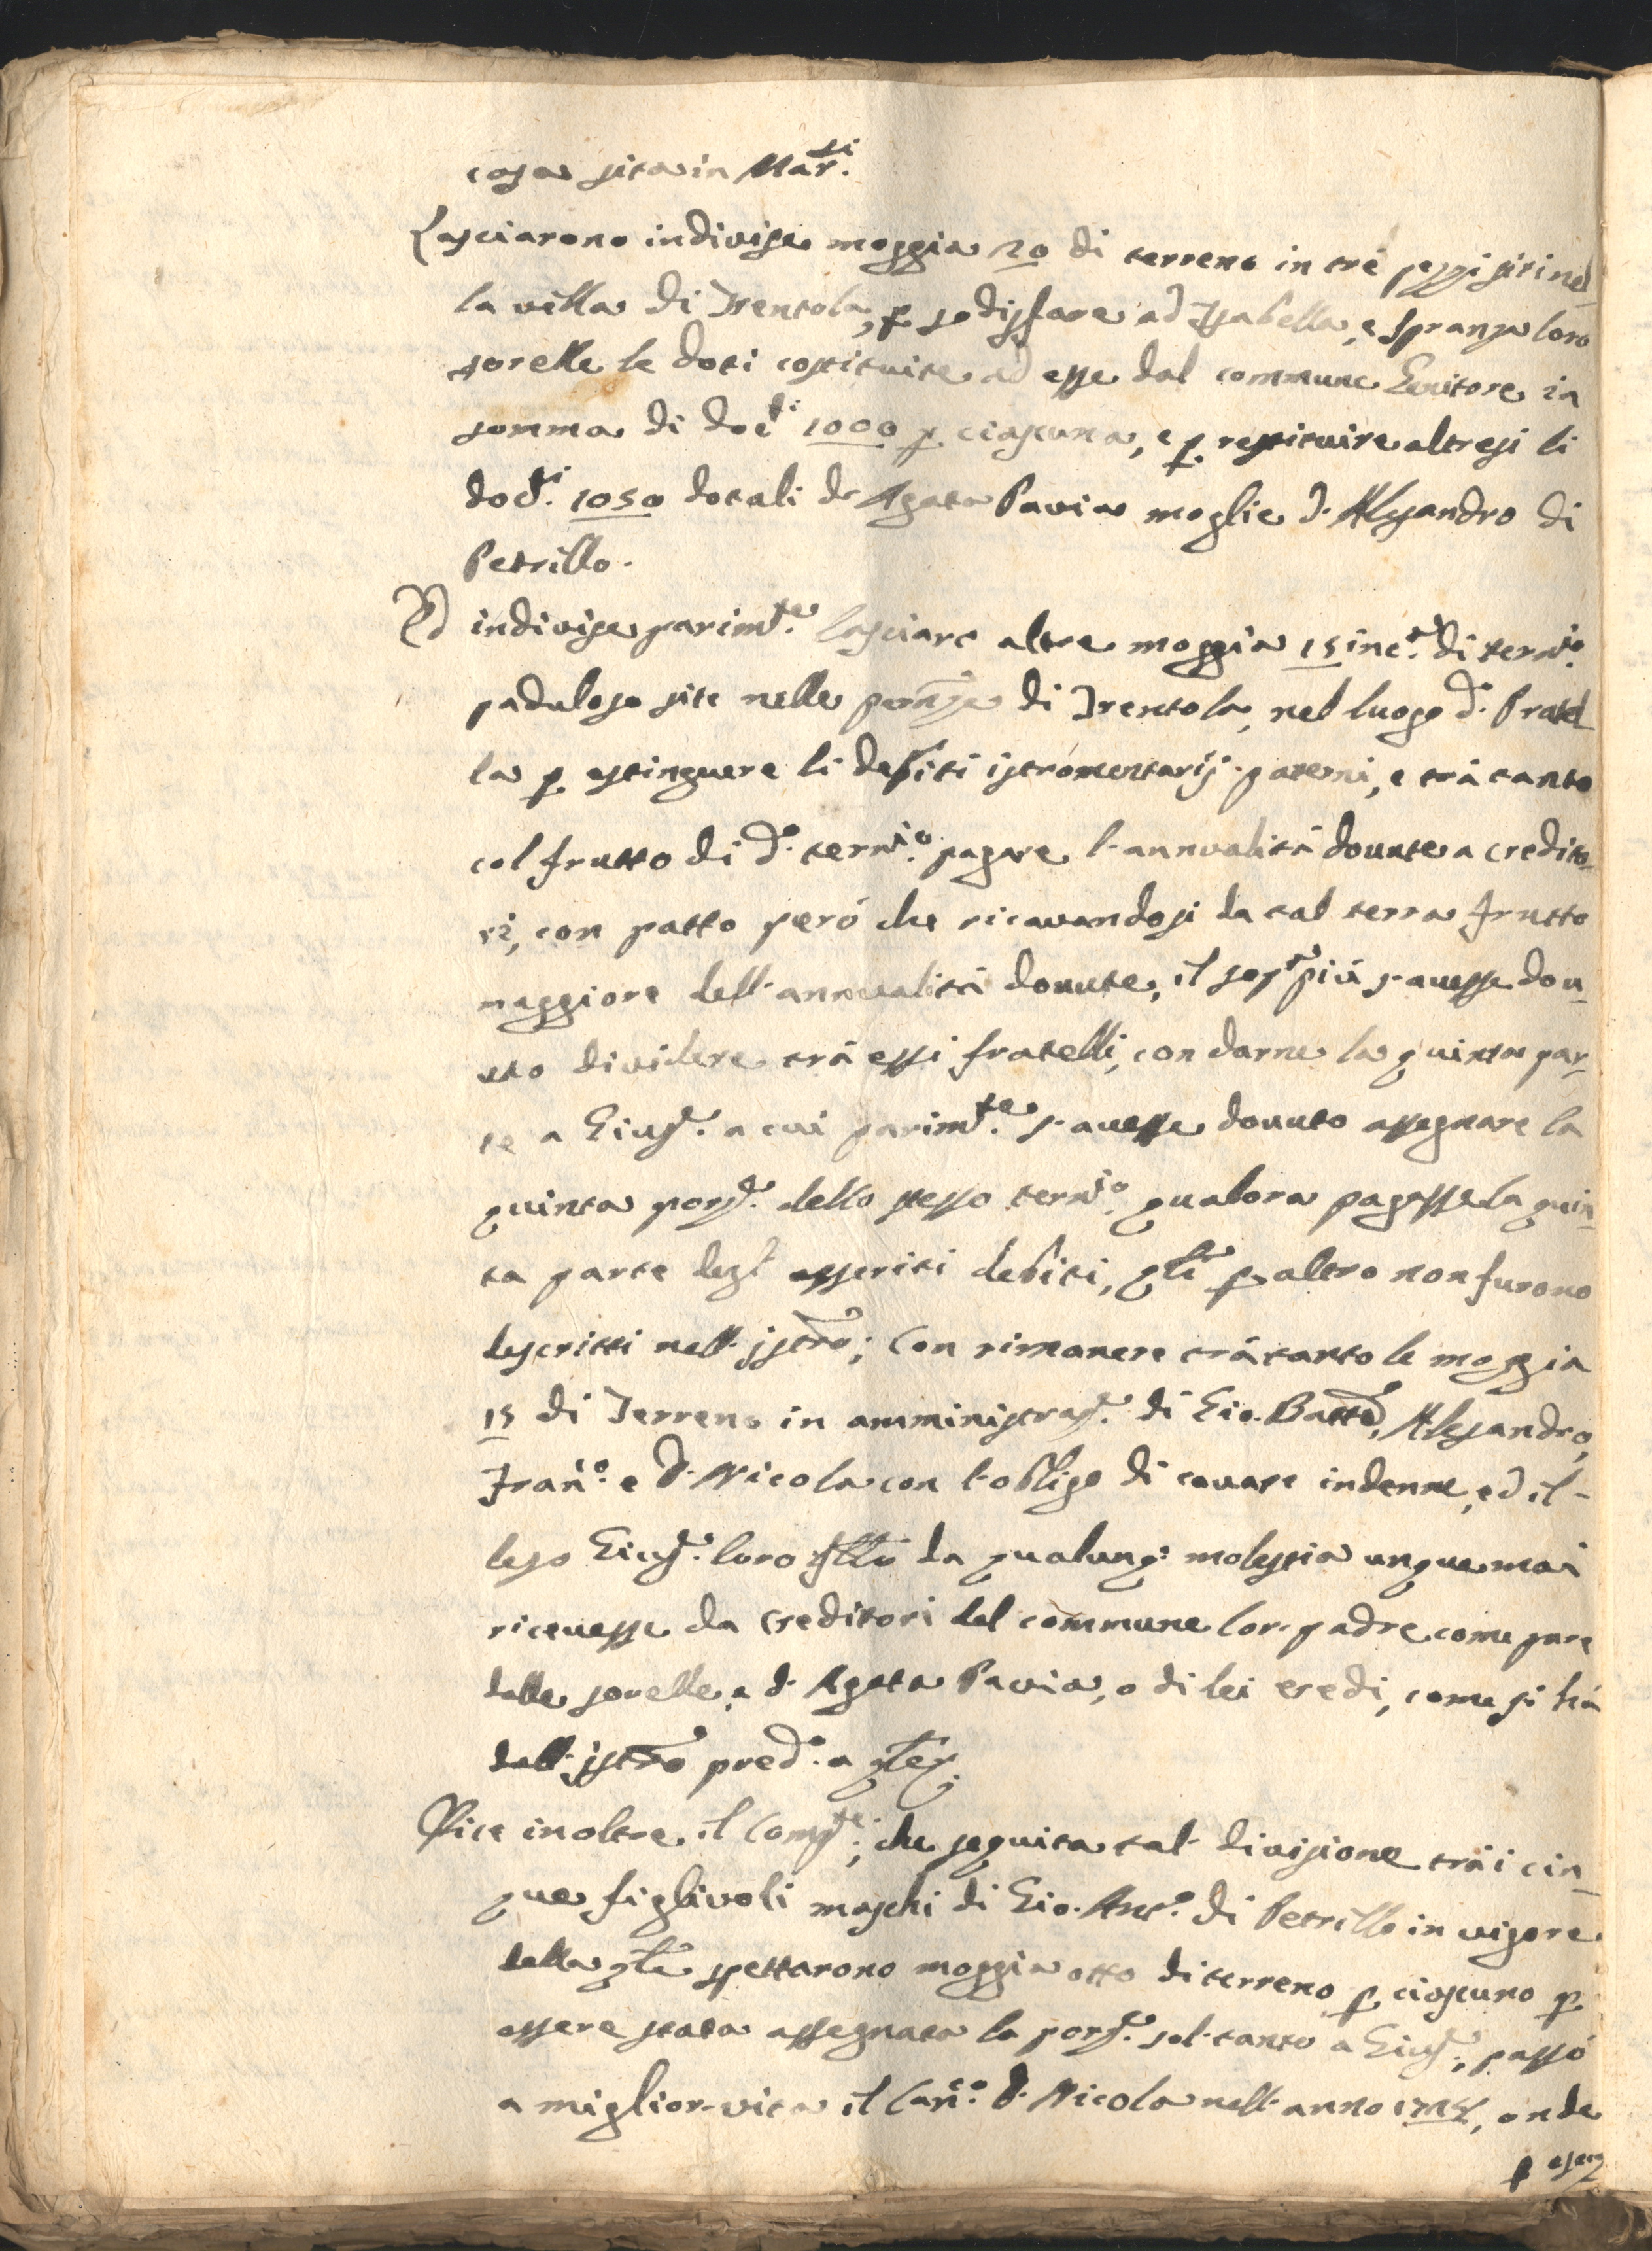 casa sita in Mar.si
Lasciarono indivise moggia 20 di terreno in tré pezzi siti nel-
la villa di Trentola, p sodisfare ad Isabella, e Spranza loro
sorelle le doti costituite ad esse dal commune Genitore in
somma di doc.ti 1000 p ciascuna, e p restituire altresi li
doc.ti 1050 dotali di Agata Pavia moglie d'Alesandro di
Petrillo.
Ed indivise parim.te lasciaro altre moggia 15 inc.a di terr.io
paduloso site nelle ptinze di Trentola, nel luogo d.o Pratel
la p estinguere li debiti istromentarij paterni, e trá tanto
col frutto di d.o terr.io pagare l'annualitá dovute a credito-
ri, con patto peró che ricavandosi da tal terra frutto
maggiore dell'annualitá dovute, il sop.a piú s'avesse dou-
uto dividere trá essi fratelli, con darne la quinta par-
te a Gius.e a cui parim.te s'avesse douuto assegnare la
quinta porz.e dello stesso terr.io qualora pagasse la quin-
ta parte degl' asseriti debiti, qli p altro non furono
descritti nell'istro; Con rimanere trá tanto le moggia
15 di Terreno in amministraz.e di Gio. Batta, Alesandro,
Fran.co e D. Nicola con l'obligo di cavare indenne, ed il-
leso Gius.e loro fllo da qualunq; molestia unque mai
ricevesse da creditori del commune lor padre come pure
dalle sorelle, e d'Agata Pavia, o di lei eredi, come si há
dall'istro pred.o a qte
Dice inoltre il Comp.te, che seguita tal divisione trá i cin-
que figlivoli maschi di Gio. Ant.o di Petrillo in vigore
della qle spettarono moggia otto di terreno p ciascuno p
essere stata assegnata la porz.e sol tanto a Gius.e, passó
a miglior vita il Can.co D. Nicola nell'anno, onde